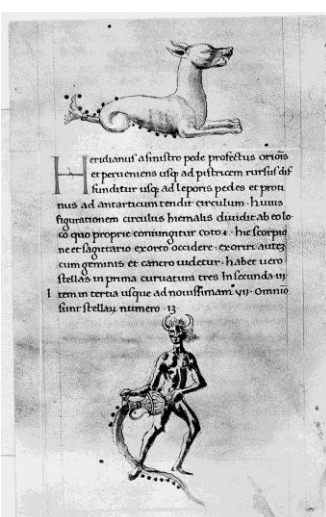 Heridianus a sinistro pede profectus oriōis
et perueniens usq; ad pistricem rursus dif
funditur usq; ad leporis pedes et proti
nus ad antarticum tendit circulum · huius
figurationem circulus hiemalis diuidit ab eo lo
co quo proprie coniungitur coto · hic scorpio
ne et sagittario exorto occidere · exoriri autez
cum geminis et cancro uidetur · habet uero
stellas in prima curuatura tres In secunda iij
Item in tertia usque ad nouissimam vij · Omnio
sunt stellaɀ numero · 13